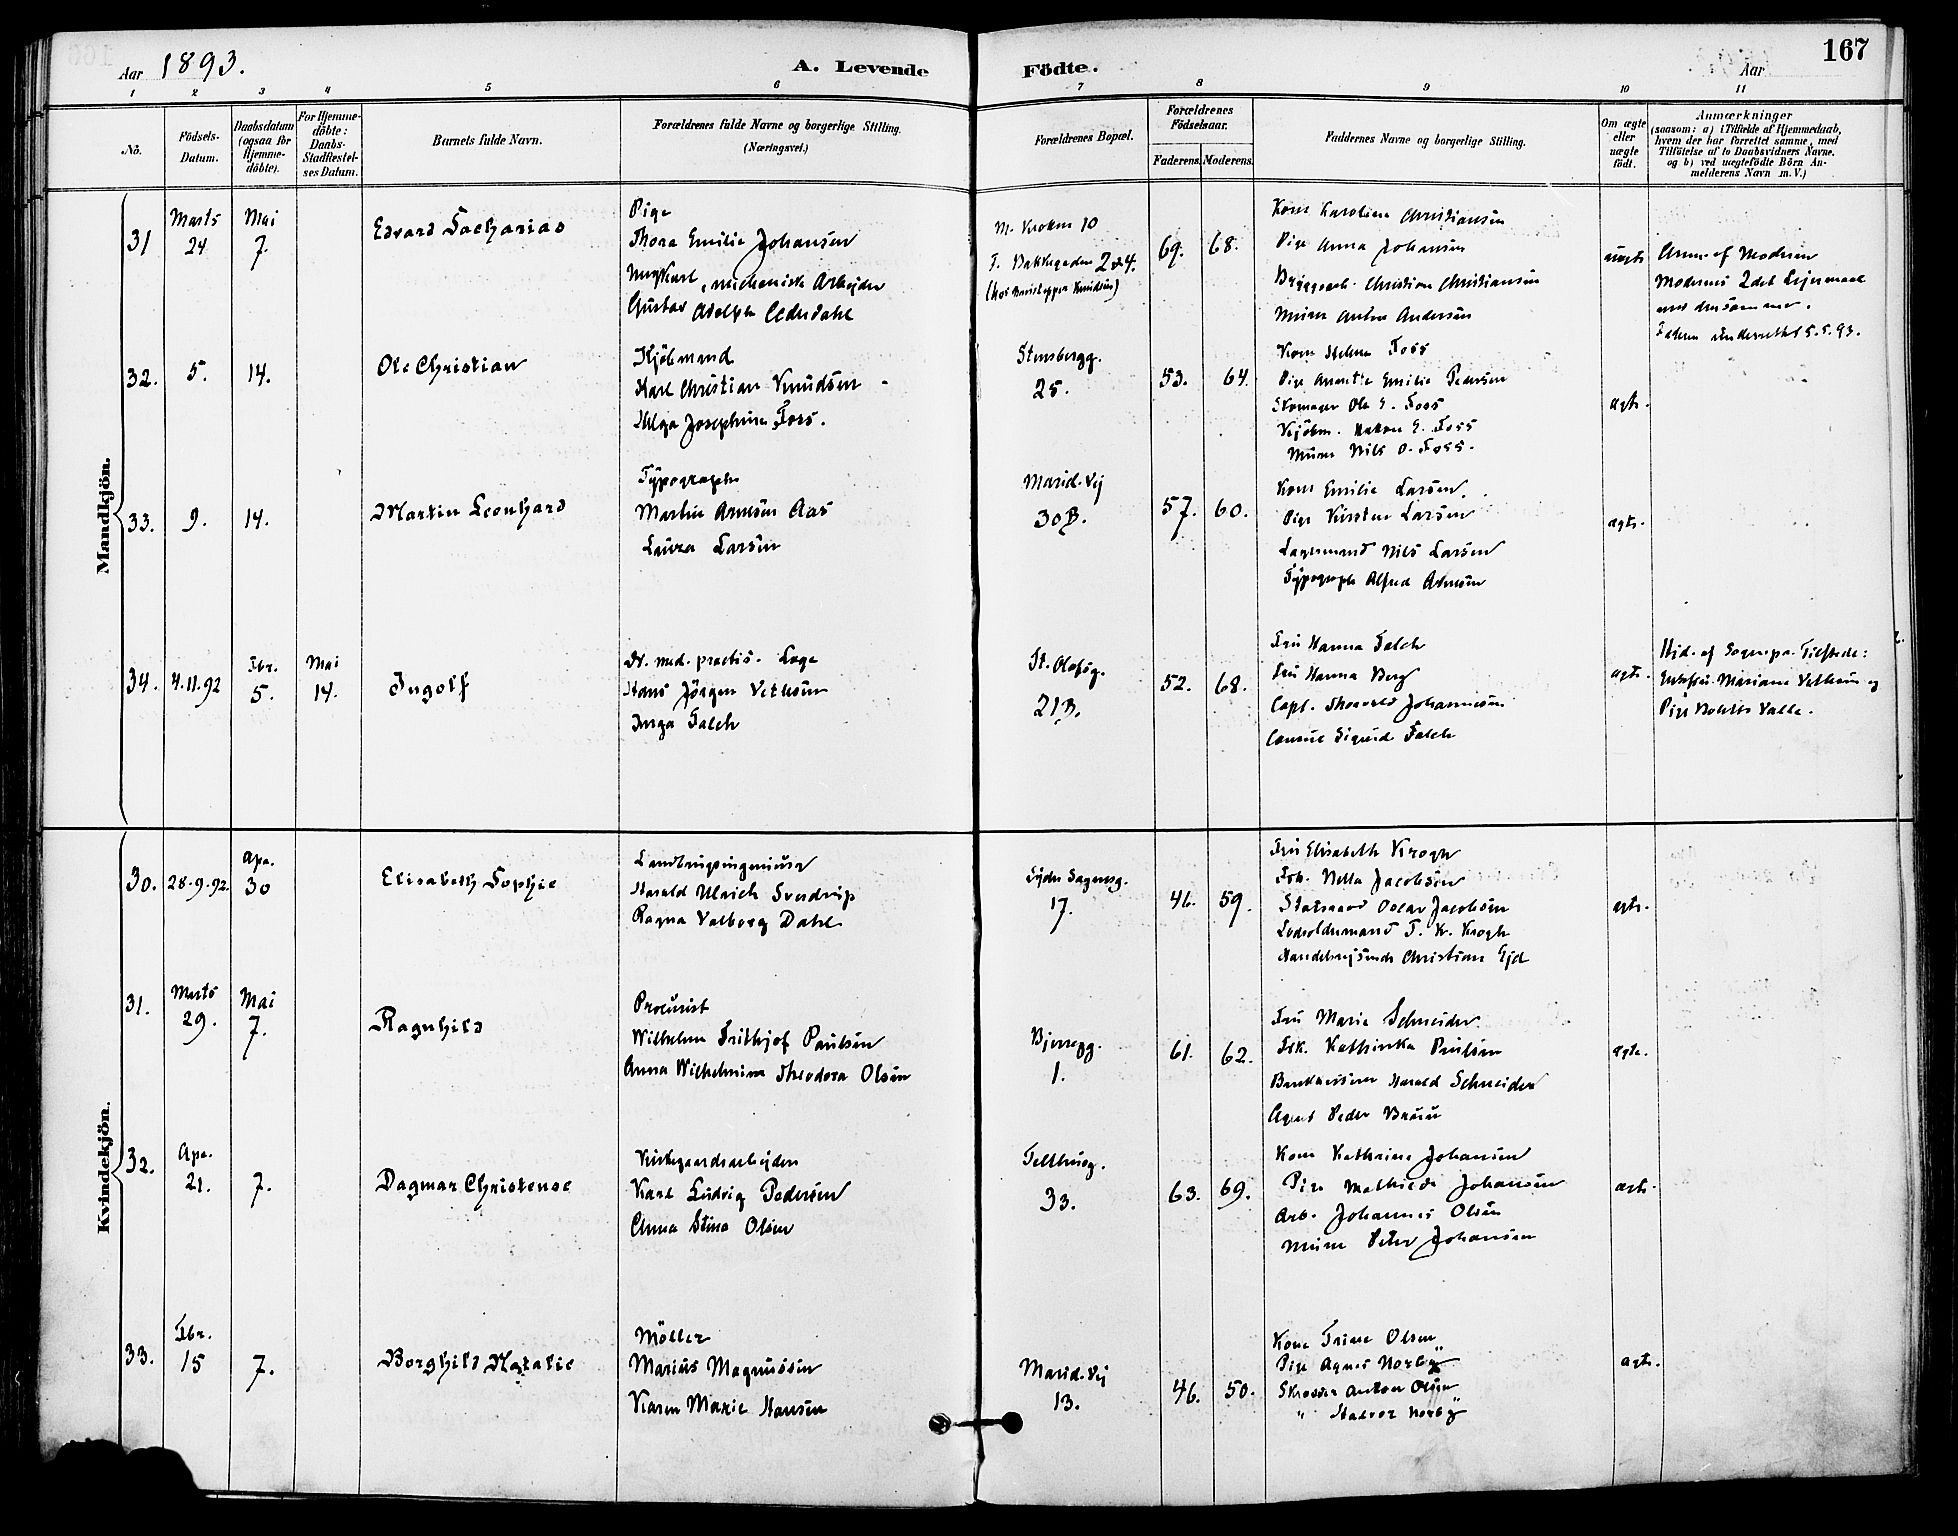 Aar 1893.
A. Levende Födte.
Aar
167
1 2 3 4 5 6 7 8 9 10 11
No.
Födsels-Datum.
Daabsdatum (ogsaa for Hjemme-döbte).
For Hjemme-döbte: Daabs-Stadfestel-ses Datum.
Barnets fulde Navn.
Forældrenes fulde Navne og borgerlige Stilling. (Næringsvei.)
Forældrenes Bopæl.
Forældrenes Födselsaar.
Faderens. Moderens.
Faddernes Navne og borgerlige Stilling.
Om ægte eller uægte födt.
Anmærkninger
(saasom: a) i Tilfælde af Hjemmedaab,
hvem der har forrettet samme, med
Tilföielse af to Daabsvidners Navne.
og b) ved uægtefödte Börn An-
melderens Navn m. V.)
Mandkjön.
31 Marts 24 Mai 7.
Edvard Sacharias
Pige
Thora Emilie Johansen
Ungkarl, mechanisk Arbejder
Gustav Adolph Cederdahl
M. Kroken 10
F. Bakkegaden 2
69. 68.
Kone Karoline Christiansen
Pige Anna Johansen
Bryggearb. Christian Christiansen
Murer Anton Andersen
uægte
Anm. af Moderen
Moderens 2det Lejermaal
med densamme.
Faderen underrettet 5.5.93.
32. 5. 14.
Ole Christian
Kjöbmand
Karl Christian Knudsen
Helga Josephine Foss.
Stensbergg.
25.
53. 64.
Kone Helene Foss
Pige Annette Emilie Pedersen
Skomager Ole E. Foss
Kjöbm. Hakon E. Foss
Murer Nils O. Foss.
ægte.
33. 9. 14.
Martin Leonhard
Typograph
Martin Arnesen Aas
Laura Larsen
Marid. Vej
30B.
57. 60.
Kone Emilie Larsen.
Pige Kirstine Larsen
Lagermand Nils Larsen
Typograph Alfred Arnesen
ægte.
34. 4.11.92 Fbr. 5. Mai 14.
Ingolf
Dr. med. practis. Læge
Hans Jörgen Vetlesen
Inga Falch
St. Olafsg.
21B.
52. 68.
Fru Hanna Falch
Fru Hanna Berg
Capt. Thorvald Johannesen
Consul Sigurd Falch
ægte.
Hjd. af Sognepr. Tilstede:
Enkefru Mariane Vetlesen og
Pige Bolette Valle.
Kvindekjön.
30. 28.9.92. Apr. 30
Elisabeth Sophie
Landbrugsingeniör
Harald Ulrich Sverdrup
Ragna Valborg Dahl
Lyder Sagensg.
17.
46. 59.
Fru Elisabeth Krogh
Frk. Netta Jacobsen
Statsraad Oscar Jacobsen
F. Kr. Krogh
Christian Ejd
ægte.
31. Marts 29. Mai 7.
Ragnhild
Procurist
Wilhelm Frithjof Paulsen
Anna Wilhelmine Theodora Olsen
Bjerregg.
1.
61. 62.
Fru Marie Schneider
Frk. Kathinka Paulsen
Bankkasserer Harald Schneider
Agent Peder Bruun
ægte.
32. Apr. 21. 7.
Dagmar Christense
Kirkegaardsarbejder
Karl Ludvig Pedersen
Anna Stina Olsen
Telthusg.
33.
63. 69.
Kone Kathrine Johansen
Pige Mathilde Johansen
Arb. Johannes Olsen
Murer Peter Johansen
ægte.
33. Fbr. 15 7.
Borghild Natalie
Möller
Marius Magnussen
Karen Marie Hansen
Marid. Vej
13.
46. 50.
Kone Trine Olsen
Pige Agnes Norby
Skrædder Anton Olsen
" Halvor Norby
ægte.